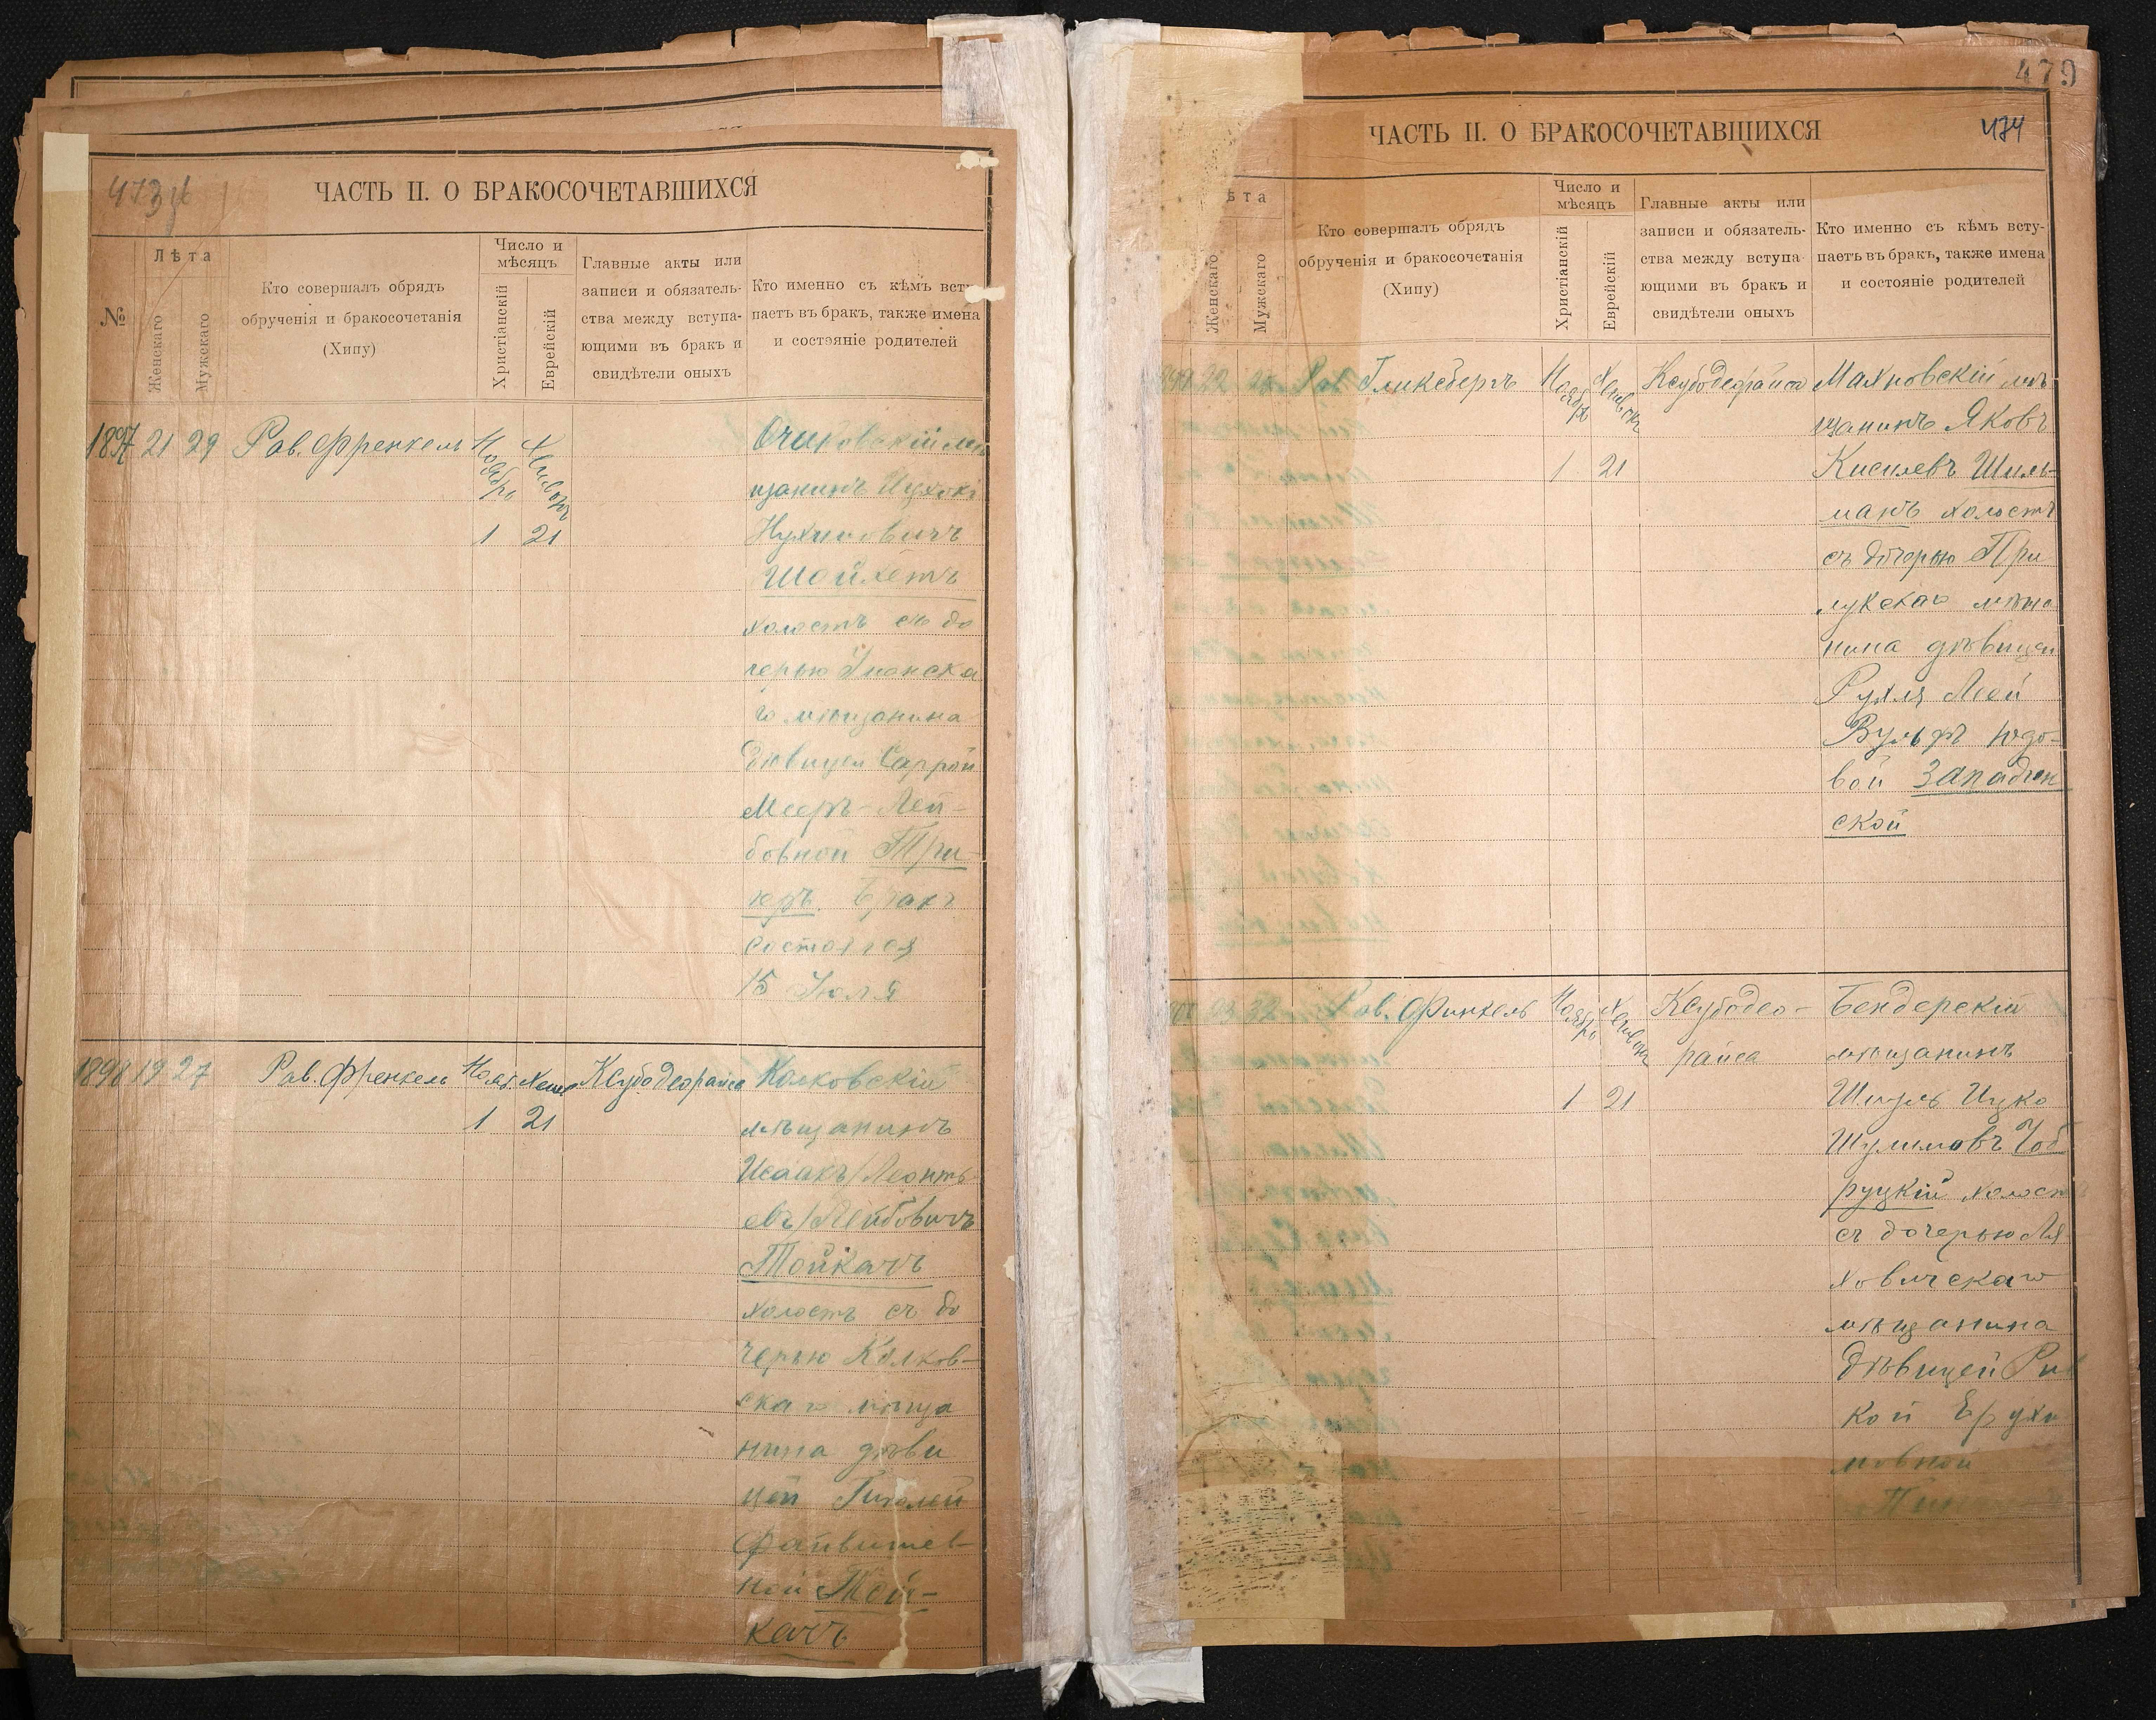 473
ЧАСТЬ II. О БРАКОСОЧЕТАВШИХСЯ
№
Лѣта
Женскаго
Мужскаго
Кто совершалъ обрядъ
обрученія и бракосочетанія
(Хипу)
Число и
мѣсяцъ
Христіанскій
Еврейскій
Главные акты или
записи и обязатель-
ства между вступа-
ющими въ бракъ и
свидѣтели оныхъ
Кто именно съ кѣмъ всту-
паетъ въ бракъ, также имена
и состояніе родителей
1897 21 29 Рав. Френкель Ноябрь Хешвонъ
1 21
Очаковскій мѣ
щанинъ
Нухимовичъ
Шойхетъ
холостъ съ до
черью Уманска
го мѣщанина
дѣвицей Саррой
Мееръ-Лей-
бовной Три-
керъ. Бракъ
состоялся
15 Іюля
1898 19 27 Рав. Френкель Нояб. Хешв Ксубодеорайса
1 21
Колковскій
мѣщанинъ
Исаакъ/Леонть
евъ/Лейбовичъ
Тойкачъ
холостъ съ до
черью Колков-
скаго мѣща
нина дѣви
цей Гитлей
Файвишев-
ной Той-
качъ
479
474
ЧАСТЬ II. О БРАКОСОЧЕТАВШИХСЯ
ѣта
Женскаго
Мужскаго
Кто совершалъ обрядъ
обрученія и бракосочетанія
(Хипу)
Число и
мѣсяцъ
Христіанскій
Еврейскій
Главные акты или
записи и обязатель-
ства между вступа-
ющими въ бракъ и
свидѣтели оныхъ
Кто именно съ кѣмъ всту-
паетъ въ бракъ, также имена
и состояніе родителей
22 Рав Гликсбергъ Ноябрь Хешвонъ Ксубодеорайса
1 21
Махновскій мѣ
щанинъ Яковъ
Киселевъ Шиль-
манъ холостъ
съ дочерью При
лукскаго мѣща
нина дѣвицей
Рухля Леей
Вульфъ Юдо-
вой Западин
ской
Рав. Финкель Ноябрь Хешвонъ Ксубодео-
райса
1 21
Бендерскій
мѣщанинъ
Шмуль Ицко
Шулимовъ Чоб
руцкій холост
съ дочерью Ля
ховичскаго
мѣщанина
дѣвицей Рив
кой Ерухи
мовной